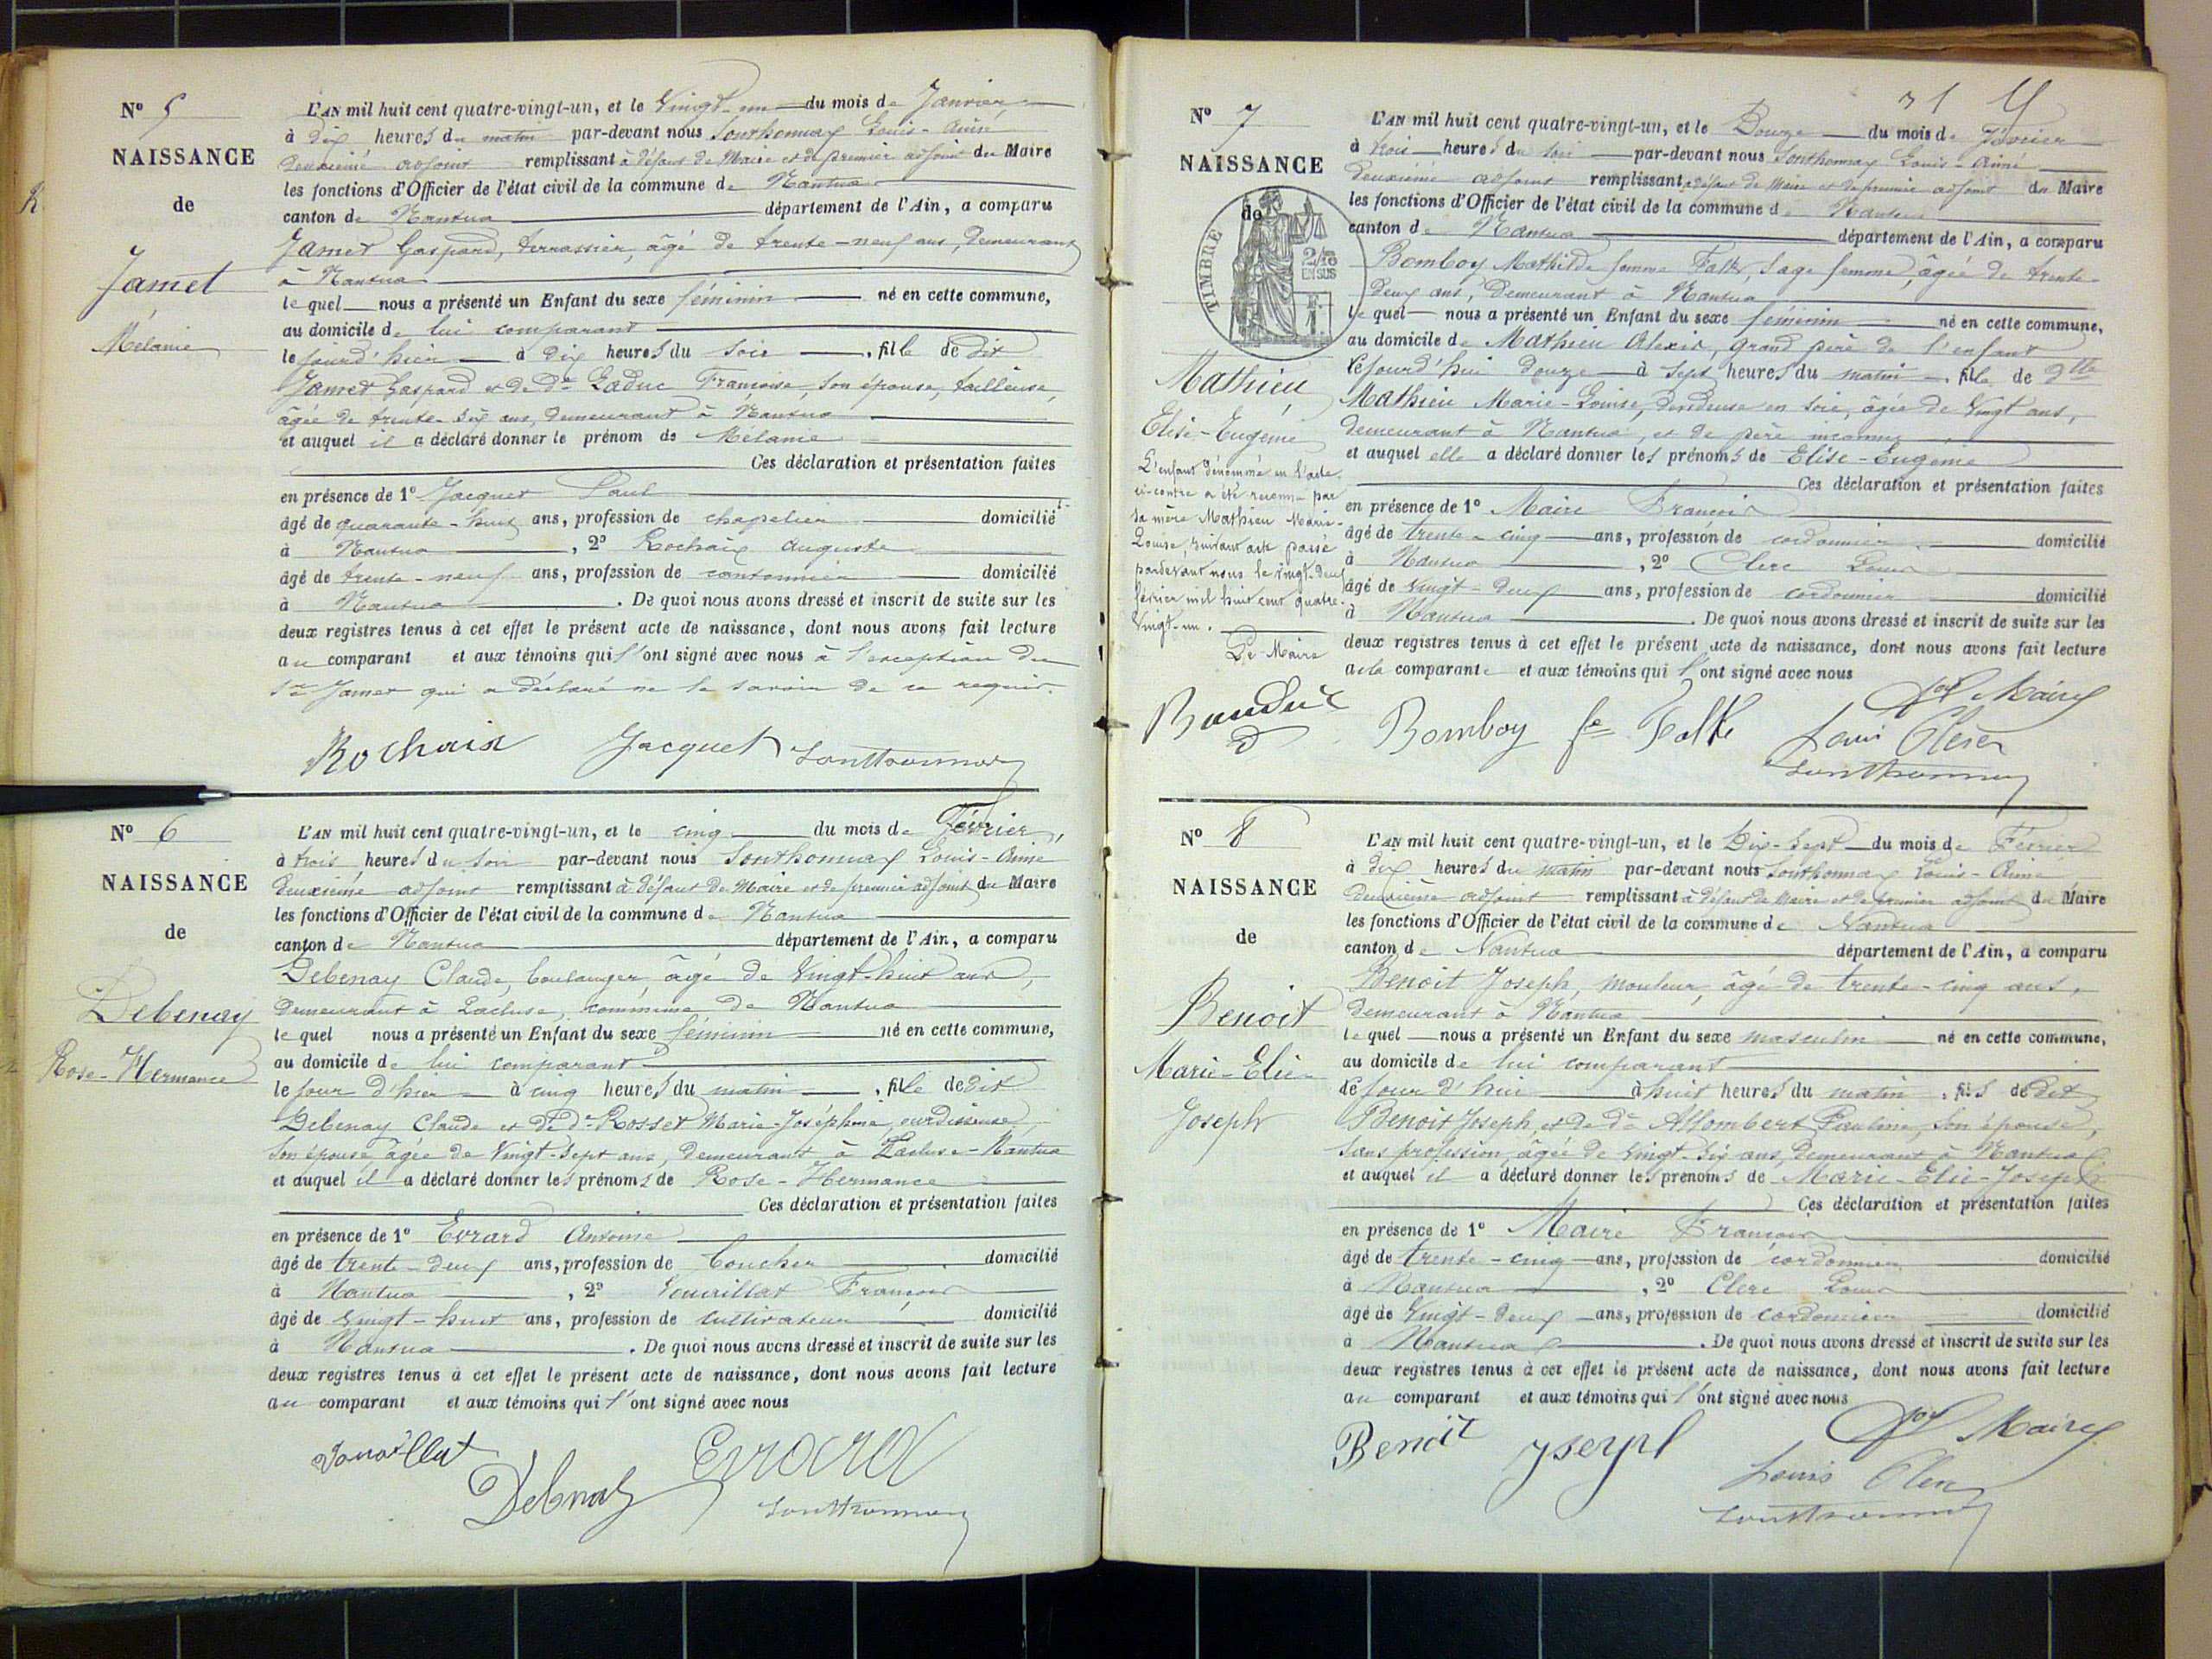 N° 5
NAISSANCE
de
Jamet
Mélanie
L'AN mil huit cent quatre-vingt-un, et le Vingt-un du mois de Janvier
à dix heures du matin par-devant nous Sonthonnax Louis-Aimé
deuxième adjoint remplissant à défaut de Maire et de premier adjoint du Maire
les fonctions d'Officier de l'état civil de la commune de Nantua
canton de Nantua département de l'Ain, a comparu
Jamet Gaspard, terrassier, âgé de trente-neuf ans, demeurant
à Nantua
le quel nous a présenté un Enfant du sexe féminin né en cette commune,
au domicile de lui comparant
le jourd'hier à dix heures du soir, fille de dit
Jamet Gaspard et de de Laduc Françoise, son épouse, tailleuse,
âgée de trente-six ans, demeurant à Nantua
et auquel il a déclaré donner le prénom de Mélanie
Ces déclaration et présentation faites
en présence de 1° Jacquet Paul
âgé de quarante-huit ans, profession de chapelier domicilié
à Nantua, 2° Rochaix Auguste
âgé de trente-neuf ans, profession de cantonnier domicilié
à Nantua. De quoi nous avons dressé et inscrit de suite sur les
deux registres tenus à cet effet le présent acte de naissance, dont nous avons fait lecture
au comparant et aux témoins qui l'ont signé avec nous à l'exception du
sr Jamet qui a déclaré ne le savoir de ce requis.
Rochaix Jacquet Sonthonnax
N° 6
NAISSANCE
de
Debenay
Rose-Hermance
L'AN mil huit cent quatre-vingt-un, et le cinq du mois de Février,
à trois heures du soir par-devant nous Sonthonnax Louis-Aimé
deuxième adjoint remplissant à défaut de Maire et de premier adjoint du Maire
les fonctions d'Officier de l'état civil de la commune de Nantua
canton de Nantua département de l'Ain, a comparu
Debenay Claude, boulanger, âgé de Vingt-huit ans,
demeurant à Lacluse, commune de Nantua
le quel nous a présenté un Enfant du sexe féminin né en cette commune,
au domicile de lui comparant
le jour d'hier à cinq heures du matin, fille de dit
Debenay Claude et de de Rosset Marie-Joséphine, ourdisseuse
son épouse âgée de Vingt-sept ans, demeurant à Lacluse-Nantua
et auquel il a déclaré donner les prénoms de Rose-Hermance
Ces déclaration et présentation faites
en présence de 1° Evrard Antoine
âgé de trente-deux ans, profession de boucher domicilié
à Nantua, 2° Vouaillat François
âgé de vingt-huit ans, profession de cultivateur domicilié
à Nantua. De quoi nous avons dressé et inscrit de suite sur les
deux registres tenus à cet effet le présent acte de naissance, dont nous avons fait lecture
au comparant et aux témoins qui l'ont signé avec nous
Vouaillat Debenay Evrard
Sonthonnax
N° 7
NAISSANCE
de
TIMBRE
2/10
EN SUS
Mathieu
Elise-Eugénie
L'enfant dénommé en l'acte
ci-contre a été reconnu par
sa mère Mathieu Marie-
Louise, suivant acte passé
pardevant nous le vingt-deux
février mil huit cent quatre-
Vingt-un.
Le Maire
L'AN mil huit cent quatre-vingt-un, et le Douze du mois de Février
à trois heures du soir par-devant nous Sonthonnax Louis-Aimé
deuxième adjoint remplissant à défaut de Maire et de premier adjoint du Maire
les fonctions d'Officier de l'état civil de la commune de Nantua
canton de Nantua département de l'Ain, a comparu
Bomboy Mathilde femme Falk, sage femme, âgée de trente-
deux ans, demeurant à Nantua
le quel nous a présenté un Enfant du sexe féminin né en cette commune,
au domicile de Mathieu Alexis, grand père de l'enfant
cejourd'hui douze à sept heures du matin, fille de dlle
Mathieu Marie-Louise, dévideuse en soie, âgée de Vingt ans,
demeurant à Nantua, et de père inconnu
et auquel elle a déclaré donner les prénoms de Elise-Eugénie
Ces déclaration et présentation faites
en présence de 1° Maire François
âgé de trente-cinq ans, profession de cordonnier domicilié
à Nantua, 2° Clerc Louis
âgé de Vingt-deux ans, profession de cordonnier domicilié
à Nantua. De quoi nous avons dressé et inscrit de suite sur les
deux registres tenus à cet effet le présent acte de naissance, dont nous avons fait lecture
à la comparante et aux témoins qui l'ont signé avec nous
Bomboy fe Falk Maire
Louis Clerc
Sonthonnax
N° 8
NAISSANCE
de
Benoit
Marie-Elie-
Joseph
L'AN mil huit cent quatre-vingt-un, et le Dix-sept du mois de Février
à dix heures du matin par-devant nous Sonthonnax Louis-Aimé
deuxième adjoint remplissant à défaut de Maire et de premier adjoint du Maire
les fonctions d'Officier de l'état civil de la commune de Nantua
canton de Nantua département de l'Ain, a comparu
Benoit Joseph, mouleur, âgé de trente-cinq ans,
demeurant à Nantua
le quel nous a présenté un Enfant du sexe masculin né en cette commune,
au domicile de lui comparant
ce jour d'hui à huit heures du matin, fils de dit
Benoit Joseph, et de de Allombert Pauline, son épouse,
sans profession, âgée de Vingt-six ans, demeurant à Nantua
et auquel il a déclaré donner les prénoms de Marie-Elie-Joseph
Ces déclaration et présentation faites
en présence de 1° Maire François
âgé de trente-cinq ans, profession de cordonnier domicilié
à Nantua, 2° Clerc Louis
âgé de Vingt-deux ans, profession de cordonnier domicilié
à Nantua. De quoi nous avons dressé et inscrit de suite sur les
deux registres tenus à cet effet le présent acte de naissance, dont nous avons fait lecture
au comparant et aux témoins qui l'ont signé avec nous
Benoit Maire
Louis Clerc
Sonthonnax